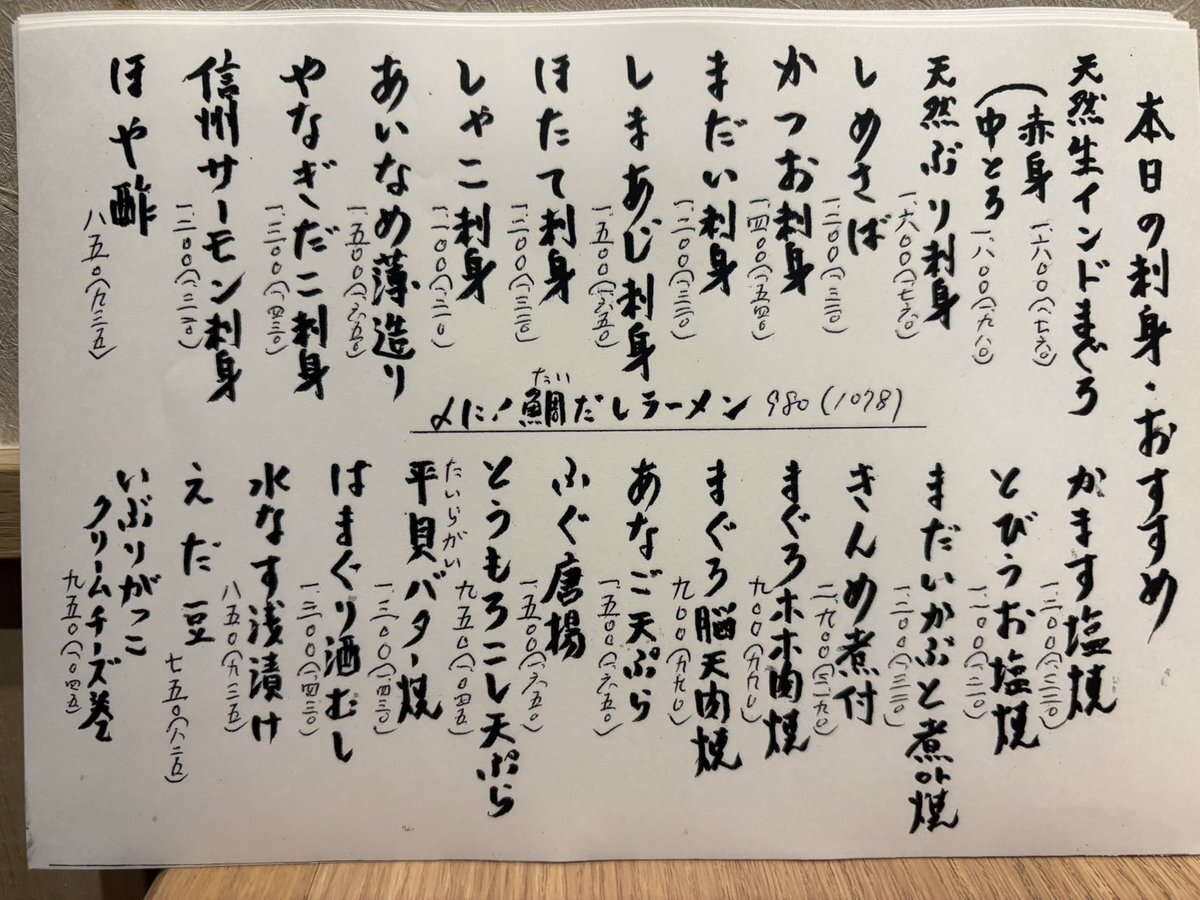 本日の刺身・おすすめ
天然生インドまぐろ
赤身 一、六〇〇(一、七六〇)
中とろ 一、八〇〇(一、九八〇)
天然ぶり刺身
一、六〇〇(一、七六〇)
しめさば
一、二〇〇(一、三二〇)
かつお刺身
一、四〇〇(一、五四〇)
まだい刺身
一、二〇〇(一、三二〇)
しまあじ刺身
一、五〇〇(一、六五〇)
ほたて刺身
一、二〇〇(一、三二〇)
しゃこ刺身
一、一〇〇(一、二一〇)
あいなめ薄造り
一、五〇〇(一、六五〇)
やなぎだこ刺身
一、三〇〇(一、四三〇)
信州サーモン刺身
一、二〇〇(一、三二〇)
ほや酢
八五〇(九三五)
〆に!鯛だしラーメン 980(1078)
たい
かます塩焼
一、二〇〇(一、三二〇)
とびうお塩焼
一、一〇〇(一、二一〇)
まだいかぶと煮or焼
一、二〇〇(一、三二〇)
きんめ煮付
二、九〇〇(三、一九〇)
まぐろホホ肉焼
九〇〇(九九〇)
まぐろ脳天肉焼
九〇〇(九九〇)
あなご天ぷら
一、五〇〇(一、六五〇)
ふぐ唐揚
一、五〇〇(一、六五〇)
とうもろこし天ぷら
九五〇(一、〇四五)
たいらがい
平貝バター焼
一、三〇〇(一、四三〇)
はまぐり酒むし
一、三〇〇(一、四三〇)
水なす浅漬け
八五〇(九三五)
えだ豆
七五〇(八二五)
いぶりがっこ
クリームチーズ巻
九五〇(一、〇四五)